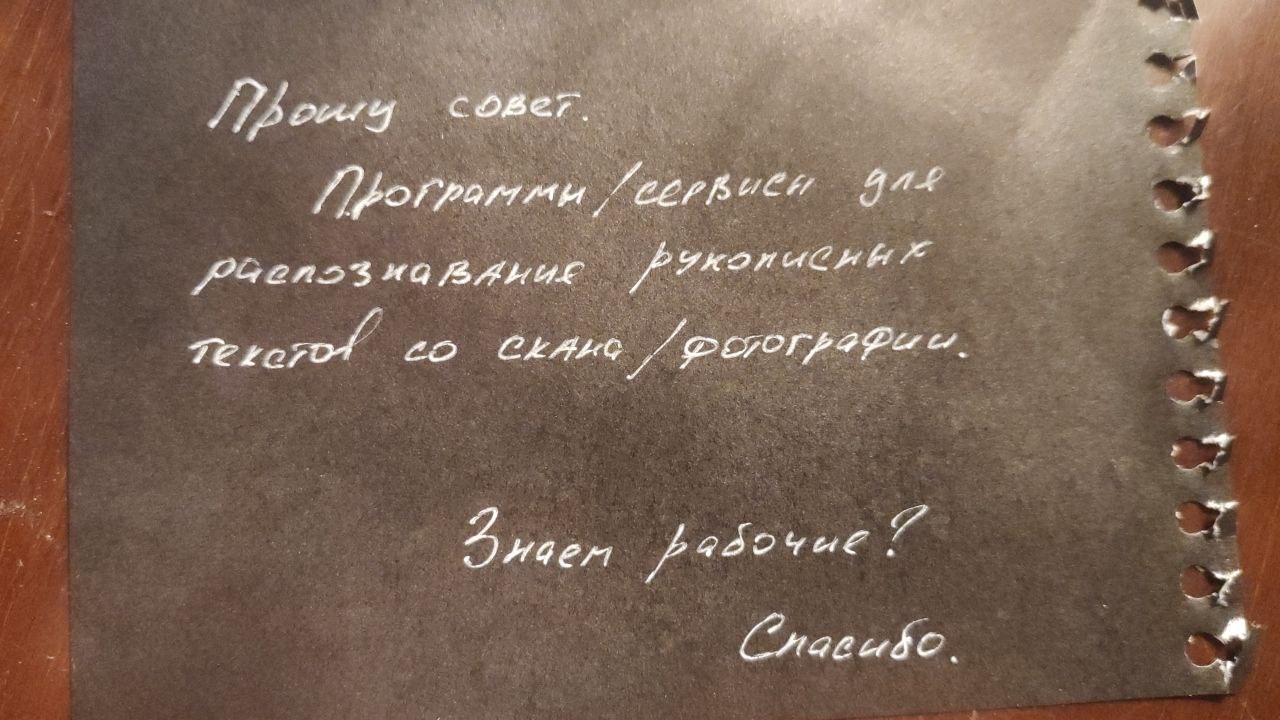 Прошу совет.
Программы/сервисы для
распознавание рукописных
текстов со скана/фотографии.
Знаем рабочие?
Спасибо.